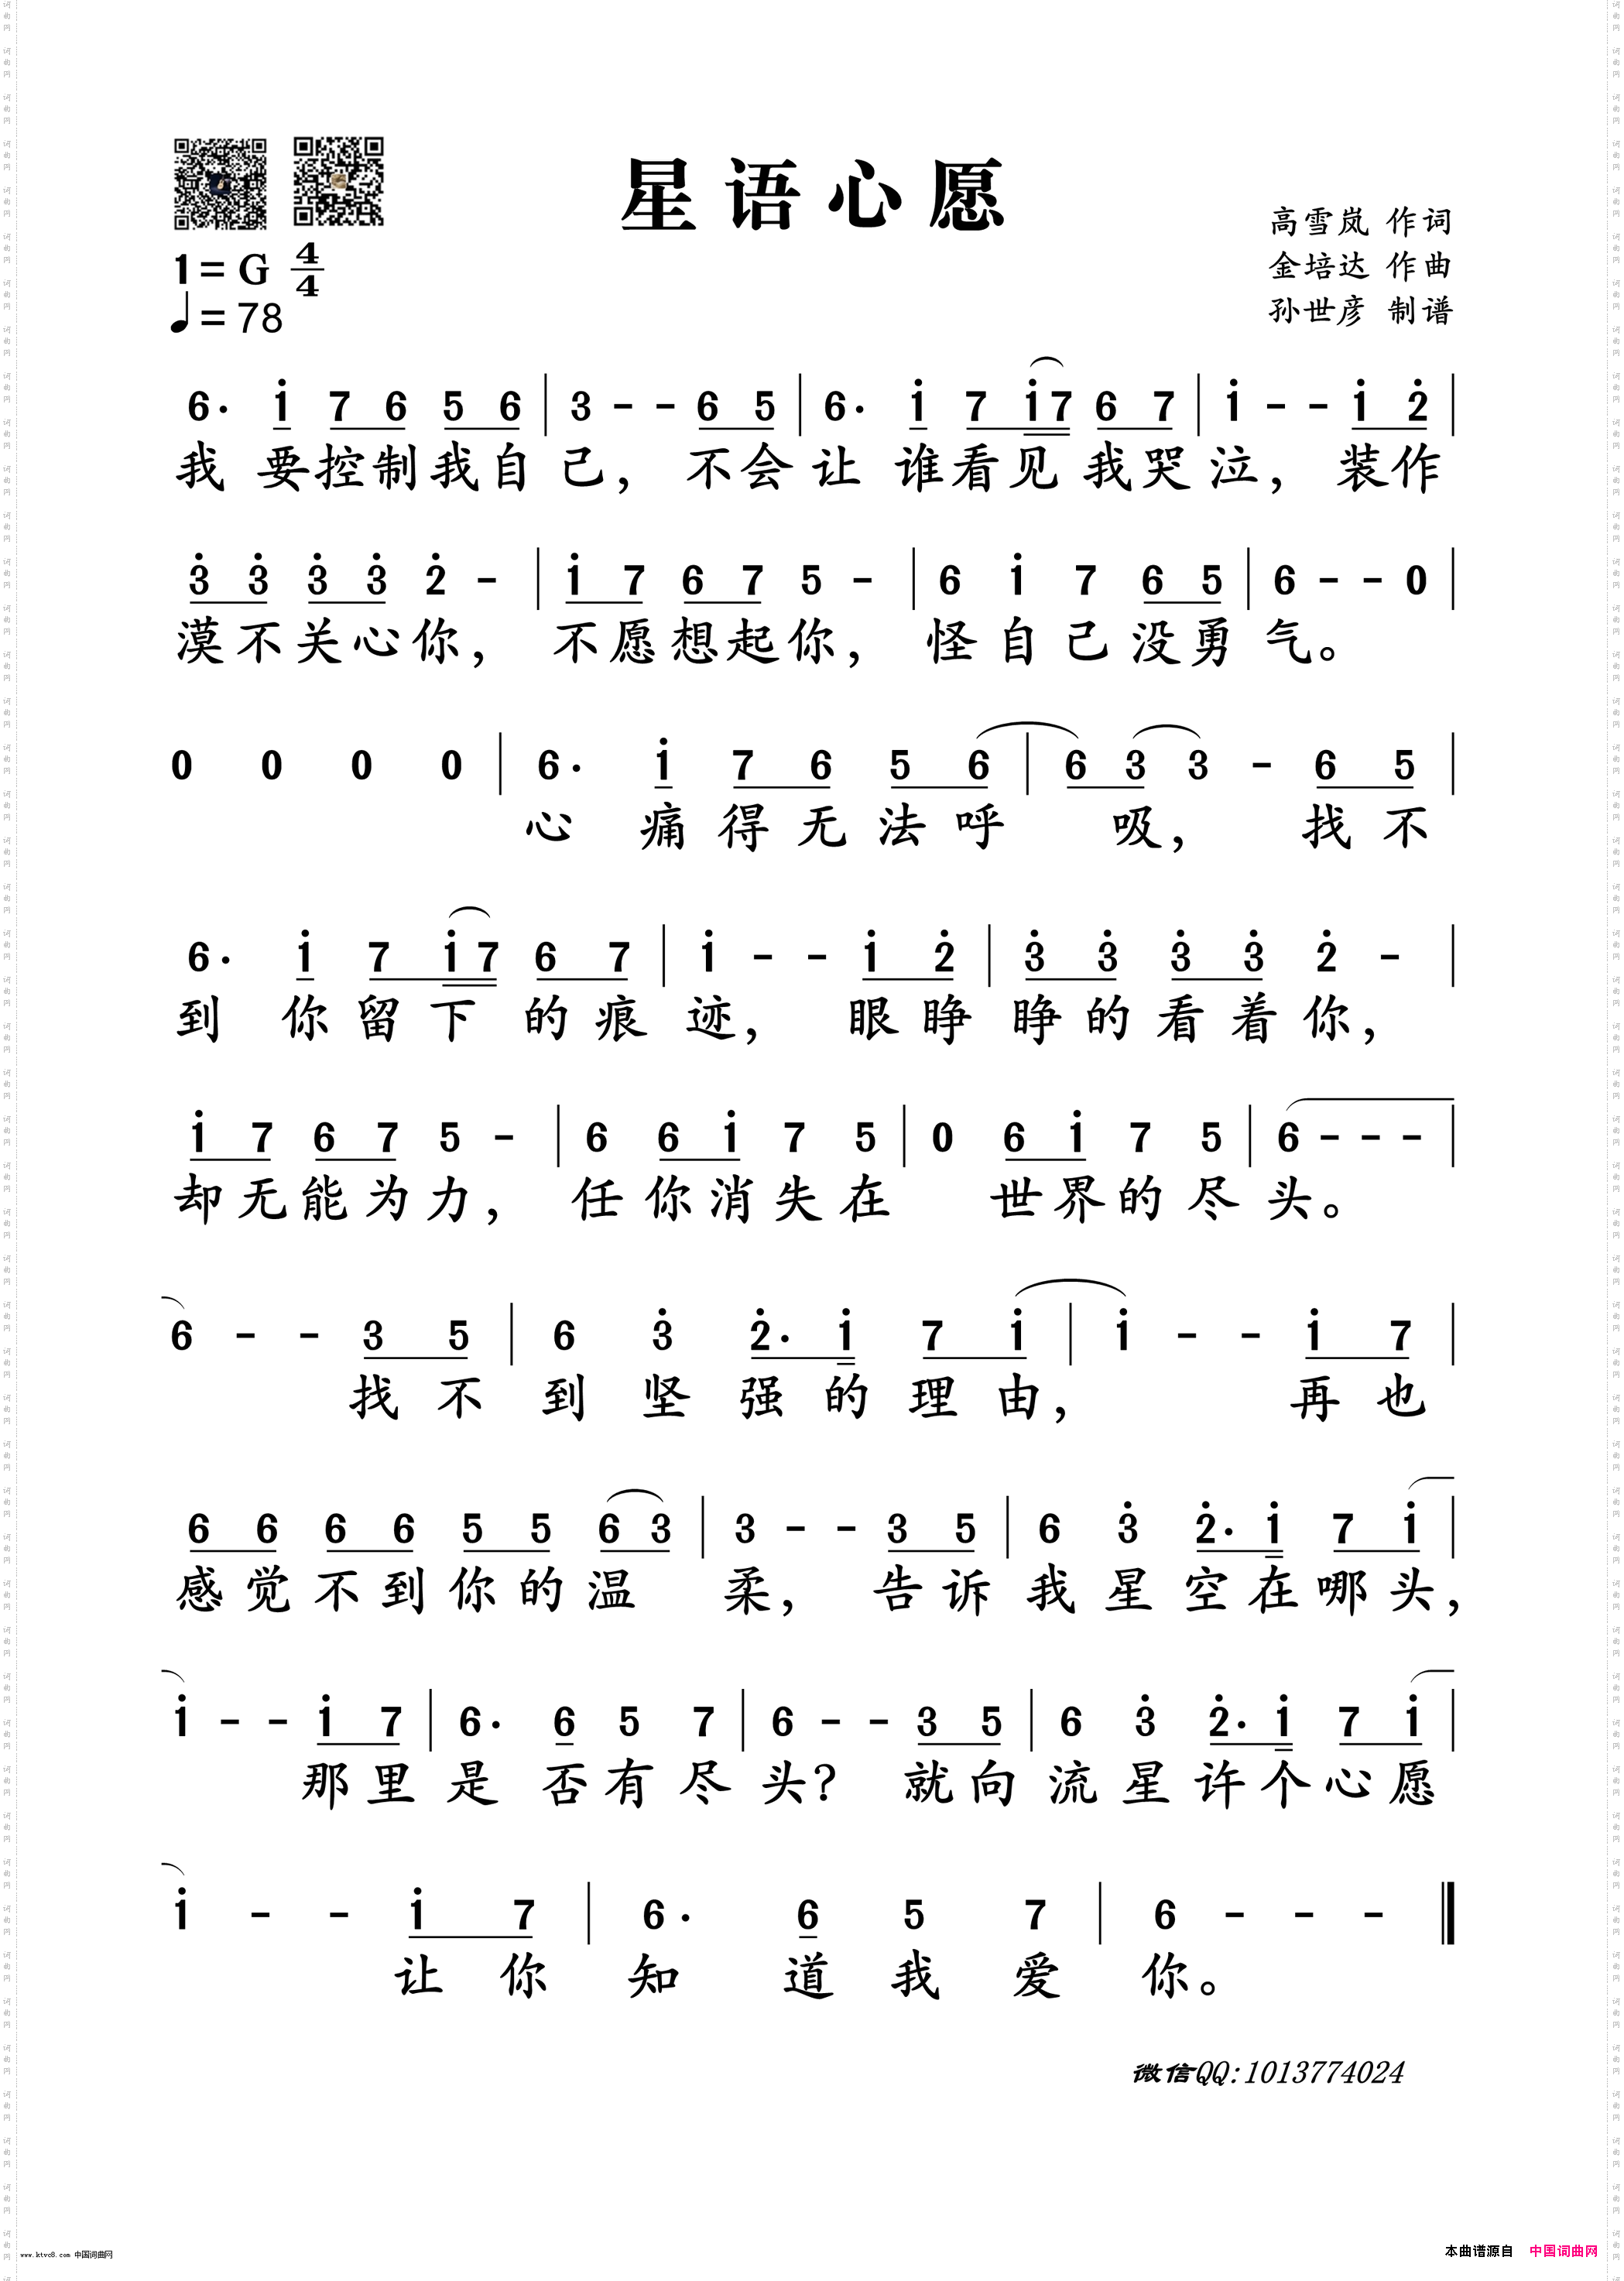 星语心愿
高雪岚 作词
金培达 作曲
孙世彦 制谱
1=G 4/4
♩=78
6· i 7 6 5 6 | 3 - - 6 5 | 6· i 7 i 7 6 7 | i - - i 2 |
我 要控制我自 己, 不会让 谁看见 我哭泣, 装作
3 3 3 3 2 - | i 7 6 7 5 - | 6 i 7 6 5 | 6 - - 0 |
漠不关心你, 不愿想起你, 怪自己没勇气。
0 0 0 0 | 6· i 7 6 5 6 | 6 3 3 - 6 5 |
心 痛得无法呼 吸, 找不
6· i 7 i 7 6 7 | i - - i 2 | 3 3 3 3 2 - |
到 你留下 的痕迹, 眼睁睁的看着你,
i 7 6 7 5 - | 6 6 i 7 5 | 0 6 i 7 5 | 6 - - - |
却无能为力, 任你消失在 世界的尽头。
6 - - 3 5 | 6 3 2· i 7 i | i - - i 7 |
找不到坚强的理由, 再也
6 6 6 6 5 5 6 3 | 3 - - 3 5 | 6 3 2· i 7 i |
感觉不到你的温 柔, 告诉我星空在哪头,
i - - i 7 | 6· 6 5 7 | 6 - - 3 5 | 6 3 2· i 7 i |
那里是 否有尽头? 就向流星许个心愿
i - - i 7 | 6· 6 5 7 | 6 - - - ‖
让你知 道我爱你。
微信QQ:1013774024
www.ktvc8.com 中国词曲网
本曲谱源自 中国词曲网